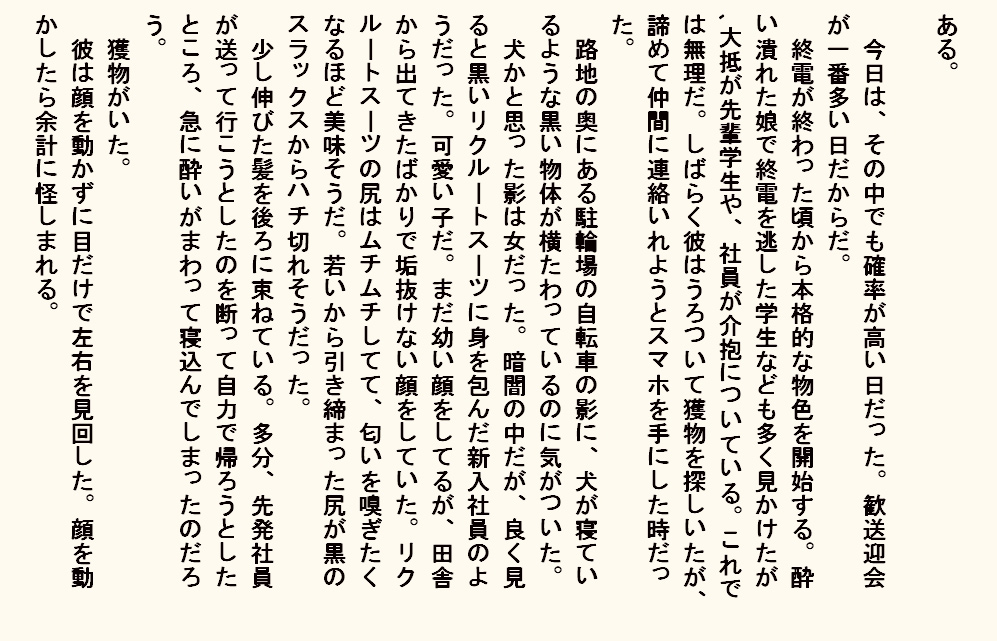 ある。
今日は、その中でも確率が高い日だった。歓送迎会
が一番多い日だからだ。
終電が終わった頃から本格的な物色を開始する。酔
い潰れた娘で終電を逃した学生なども多く見かけたが
、大抵が先輩学生や、社員が介抱についている。これで
は無理だ。しばらく彼はうろついて獲物を探しいたが、
諦めて仲間に連絡いれようとスマホを手にした時だっ
た。
路地の奥にある駐輪場の自転車の影に、犬が寝てい
るような黒い物体が横たわっているのに気がついた。
犬かと思った影は女だった。暗闇の中だが、良く見
ると黒いリクルートスーツに身を包んだ新入社員のよ
うだった。可愛い子だ。まだ幼い顔をしてるが、田舎
から出てきたばかりで垢抜けない顔をしていた。リク
ルートスーツの尻はムチムチしてて、匂いを嗅ぎたく
なるほど美味そうだ。若いから引き締まった尻が黒の
スラックスからハチ切れそうだった。
少し伸びた髪を後ろに束ねている。多分、先発社員
が送って行こうとしたのを断って自力で帰ろうとした
ところ、急に酔いがまわって寝込んでしまったのだろ
う。
獲物がいた。
彼は顔を動かずに目だけで左右を見回した。顔を動
かしたら余計に怪しまれる。